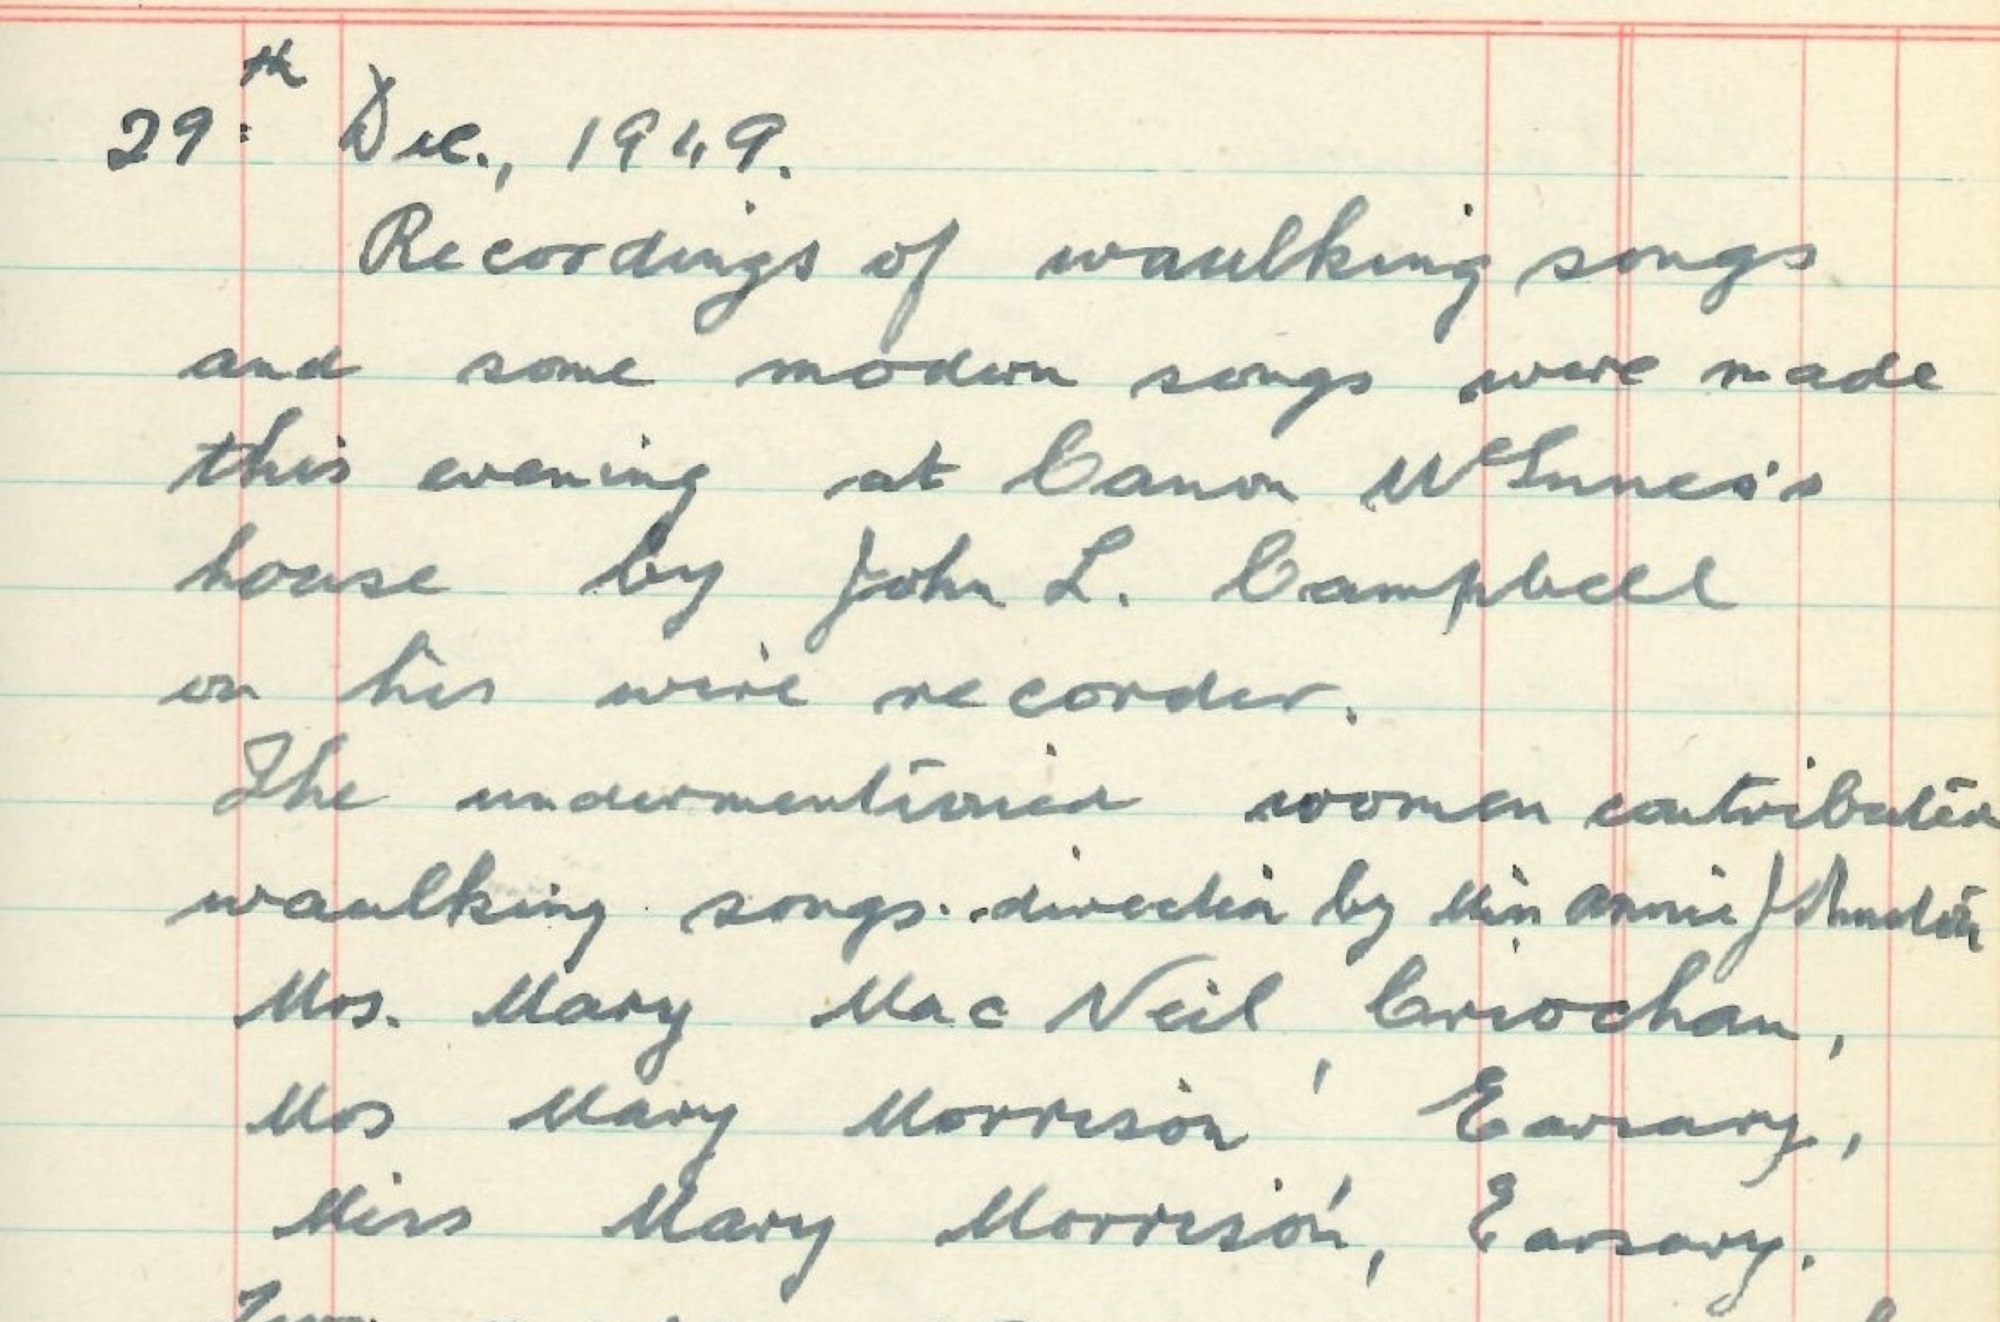 29th Dec., 1949.
Recordings of waulking songs
and some modern songs were made
this evening at Canon McInnes's
house by John L. Campbell
on his wire recorder.
The undermentioned women contributed
waulking songs. directed by Miss Annie Johnston
Mrs. Mary MacNeil, Criochan,
Mrs Mary Morrison, Earsary,
Miss Mary Morrison, Earsary.